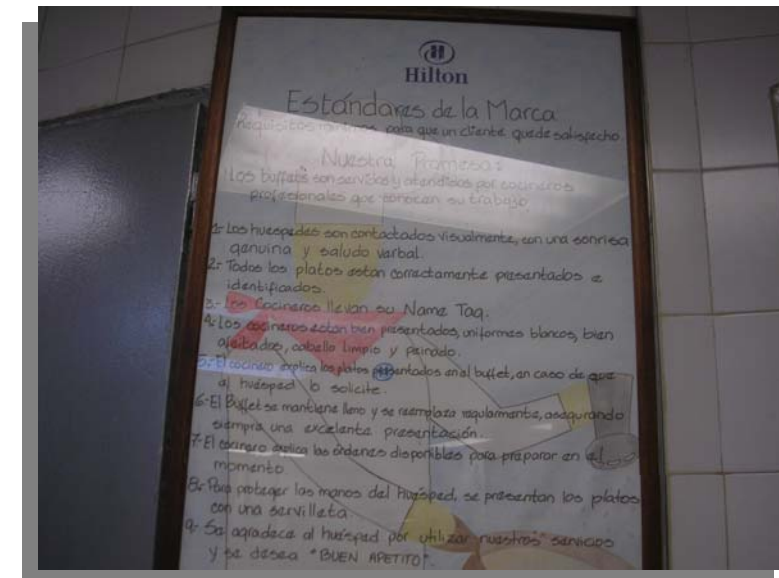 H
Hilton
Estándares de la Marca
Requisitos mínimos para que un cliente quede satisfecho.
Nuestra Promesa:
Los buffets son servidos y atendidos por cocineros
profesionales que conocen su trabajo.
1- Los huéspedes son contactados visualmente, con una sonrisa
genuina y saludo verbal.
2- Todos los platos estan correctamente presentados e
identificados.
3- Los Cocineros llevan su Name Tag.
4- Los cocineros estan bien presentados, uniformes blancos, bien
afeitados, cabello limpio y peinado.
5- El cocinero explica los platos presentados en el buffet, en caso de que
el huésped lo solicite.
6- El Buffet se mantiene lleno y se reemplaza regularmente, asegurando
siempre una excelente presentación.
7- El cocinero explica las órdenes disponibles para preparar en el
momento
8- Para proteger las manos del huésped, se presentan los platos
con una servilleta.
9- Se agradece al huésped por utilizar nuestros servicios
y se desea "BUEN APETITO".